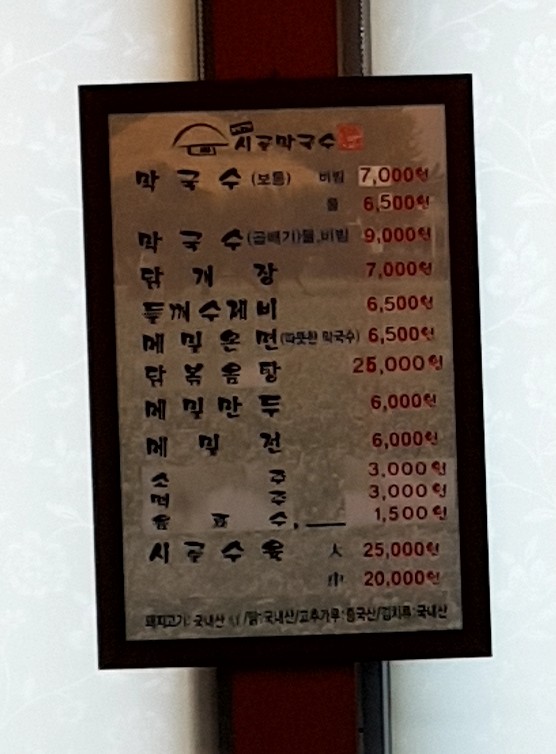 시골막국수
막국수(보통) 비빔 7,000원
물 6,500원
막국수(곱배기)물,비빔 9,000원
닭개장 7,000원
들깨수제비 6,500원
메밀온면(따뜻한 막국수) 6,500원
닭볶음탕 25,000원
메밀만두 6,000원
메밀전 6,000원
소주 3,000원
맥주 3,000원
음료수, 1,500원
시골수육 大 25,000원
中 20,000원
돼지고기: 국내산 /닭:국내산/고추가루:중국산/김치류:국내산